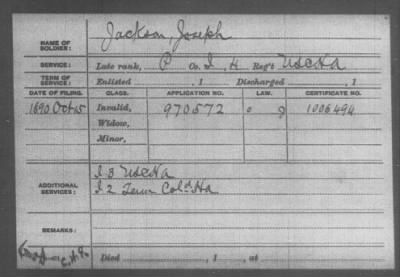 Jackson, Joseph
NAME OF SOLDIER:
SERVICE: Late rank, P Co. I, 4 Reg't USCHA
TERM OF SERVICE: Enlisted , 1 Discharged , 1
DATE OF FILING. CLASS. APPLICATION NO. LAW. CERTIFICATE NO.
1890 Oct 15 Invalid, 970572 1006494
Widow,
Minor,
ADDITIONAL SERVICES: I 3 USCHA
I 2 Tenn Col'd HA
REMARKS:
Died , 1 , at